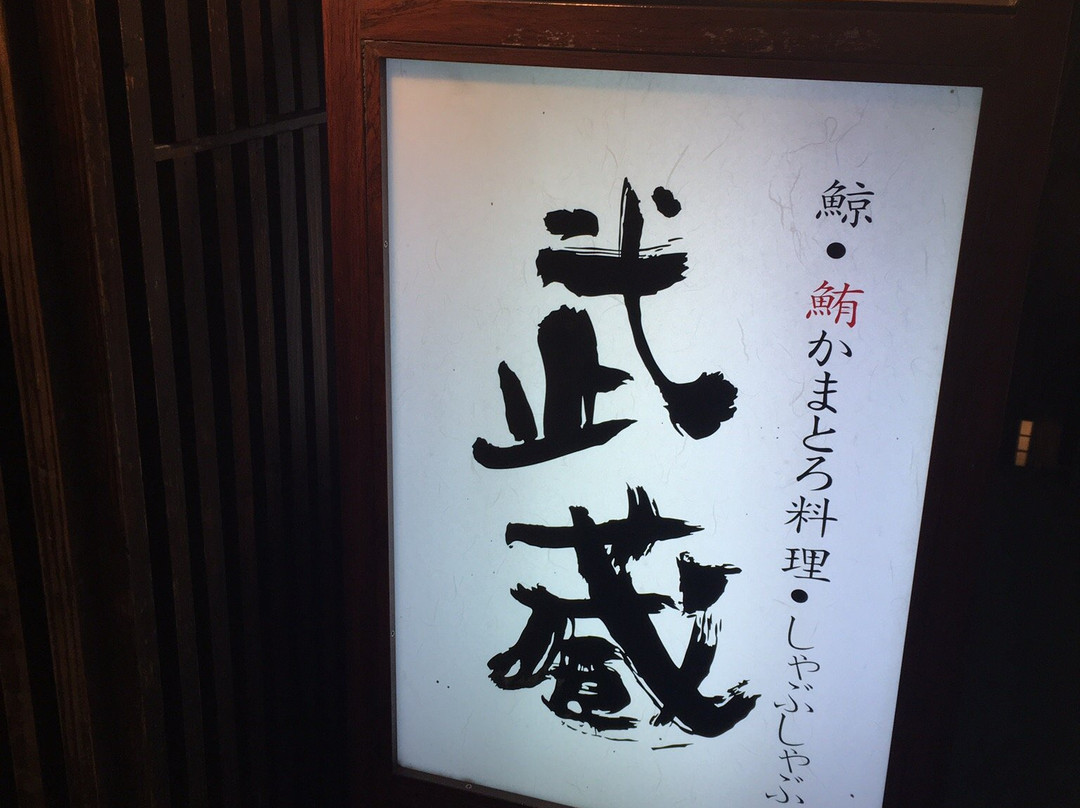 鯨・鮪かまとろ料理・しゃぶしゃぶ
武蔵